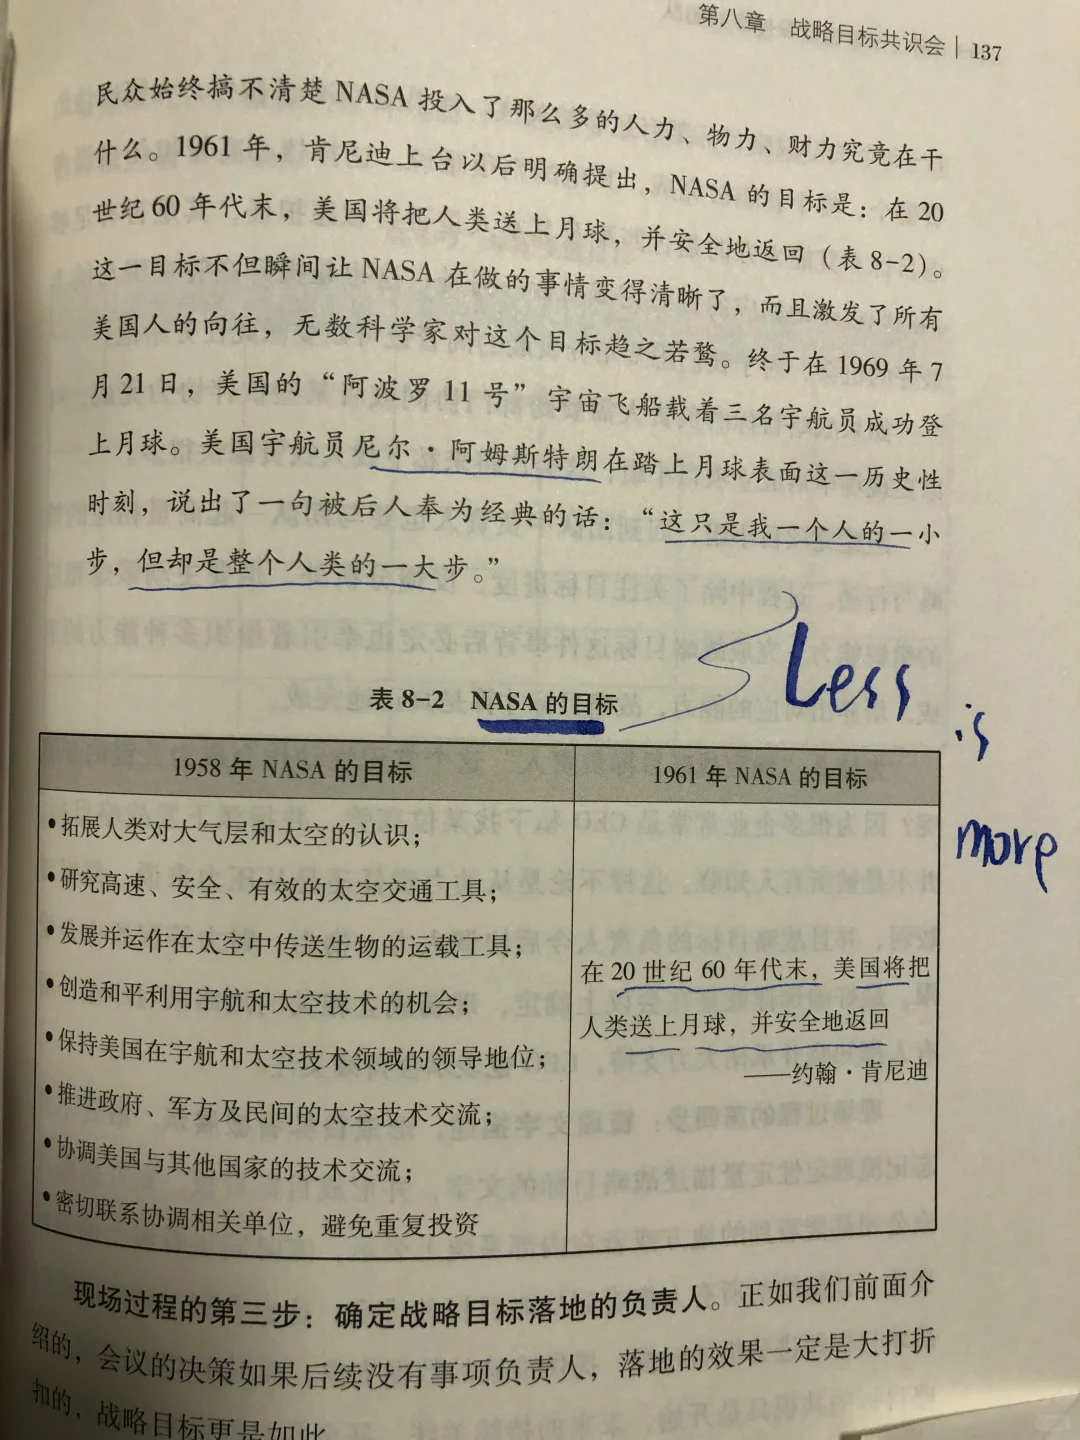 第八章 战略目标共识会 | 137
民众始终搞不清楚 NASA 投入了那么多的人力、物力、财力究竟在干
什么。1961 年，肯尼迪上台以后明确提出，NASA 的目标是：在 20
世纪 60 年代末，美国将把人类送上月球，并安全地返回（表 8-2）。
这一目标不但瞬间让 NASA 在做的事情变得清晰了，而且激发了所有
美国人的向往，无数科学家对这个目标趋之若鹜。终于在 1969 年 7
月 21 日，美国的“阿波罗 11 号”宇宙飞船载着三名宇航员成功登
上月球。美国宇航员尼尔·阿姆斯特朗在踏上月球表面这一历史性
时刻，说出了一句被后人奉为经典的话：“这只是我一个人的一小
步，但却是整个人类的一大步。”
Less
is
more
表 8-2 NASA 的目标
1958 年 NASA 的目标
•拓展人类对大气层和太空的认识；
•研究高速、安全、有效的太空交通工具；
•发展并运作在太空中传送生物的运载工具；
•创造和平利用宇航和太空技术的机会；
•保持美国在宇航和太空技术领域的领导地位；
•推进政府、军方及民间的太空技术交流；
•协调美国与其他国家的技术交流；
•密切联系协调相关单位，避免重复投资
1961 年 NASA 的目标
在 20 世纪 60 年代末，美国将把
人类送上月球，并安全地返回
——约翰·肯尼迪
现场过程的第三步：确定战略目标落地的负责人。正如我们前面介
绍的，会议的决策如果后续没有事项负责人，落地的效果一定是大打折
扣的，战略目标更是如此